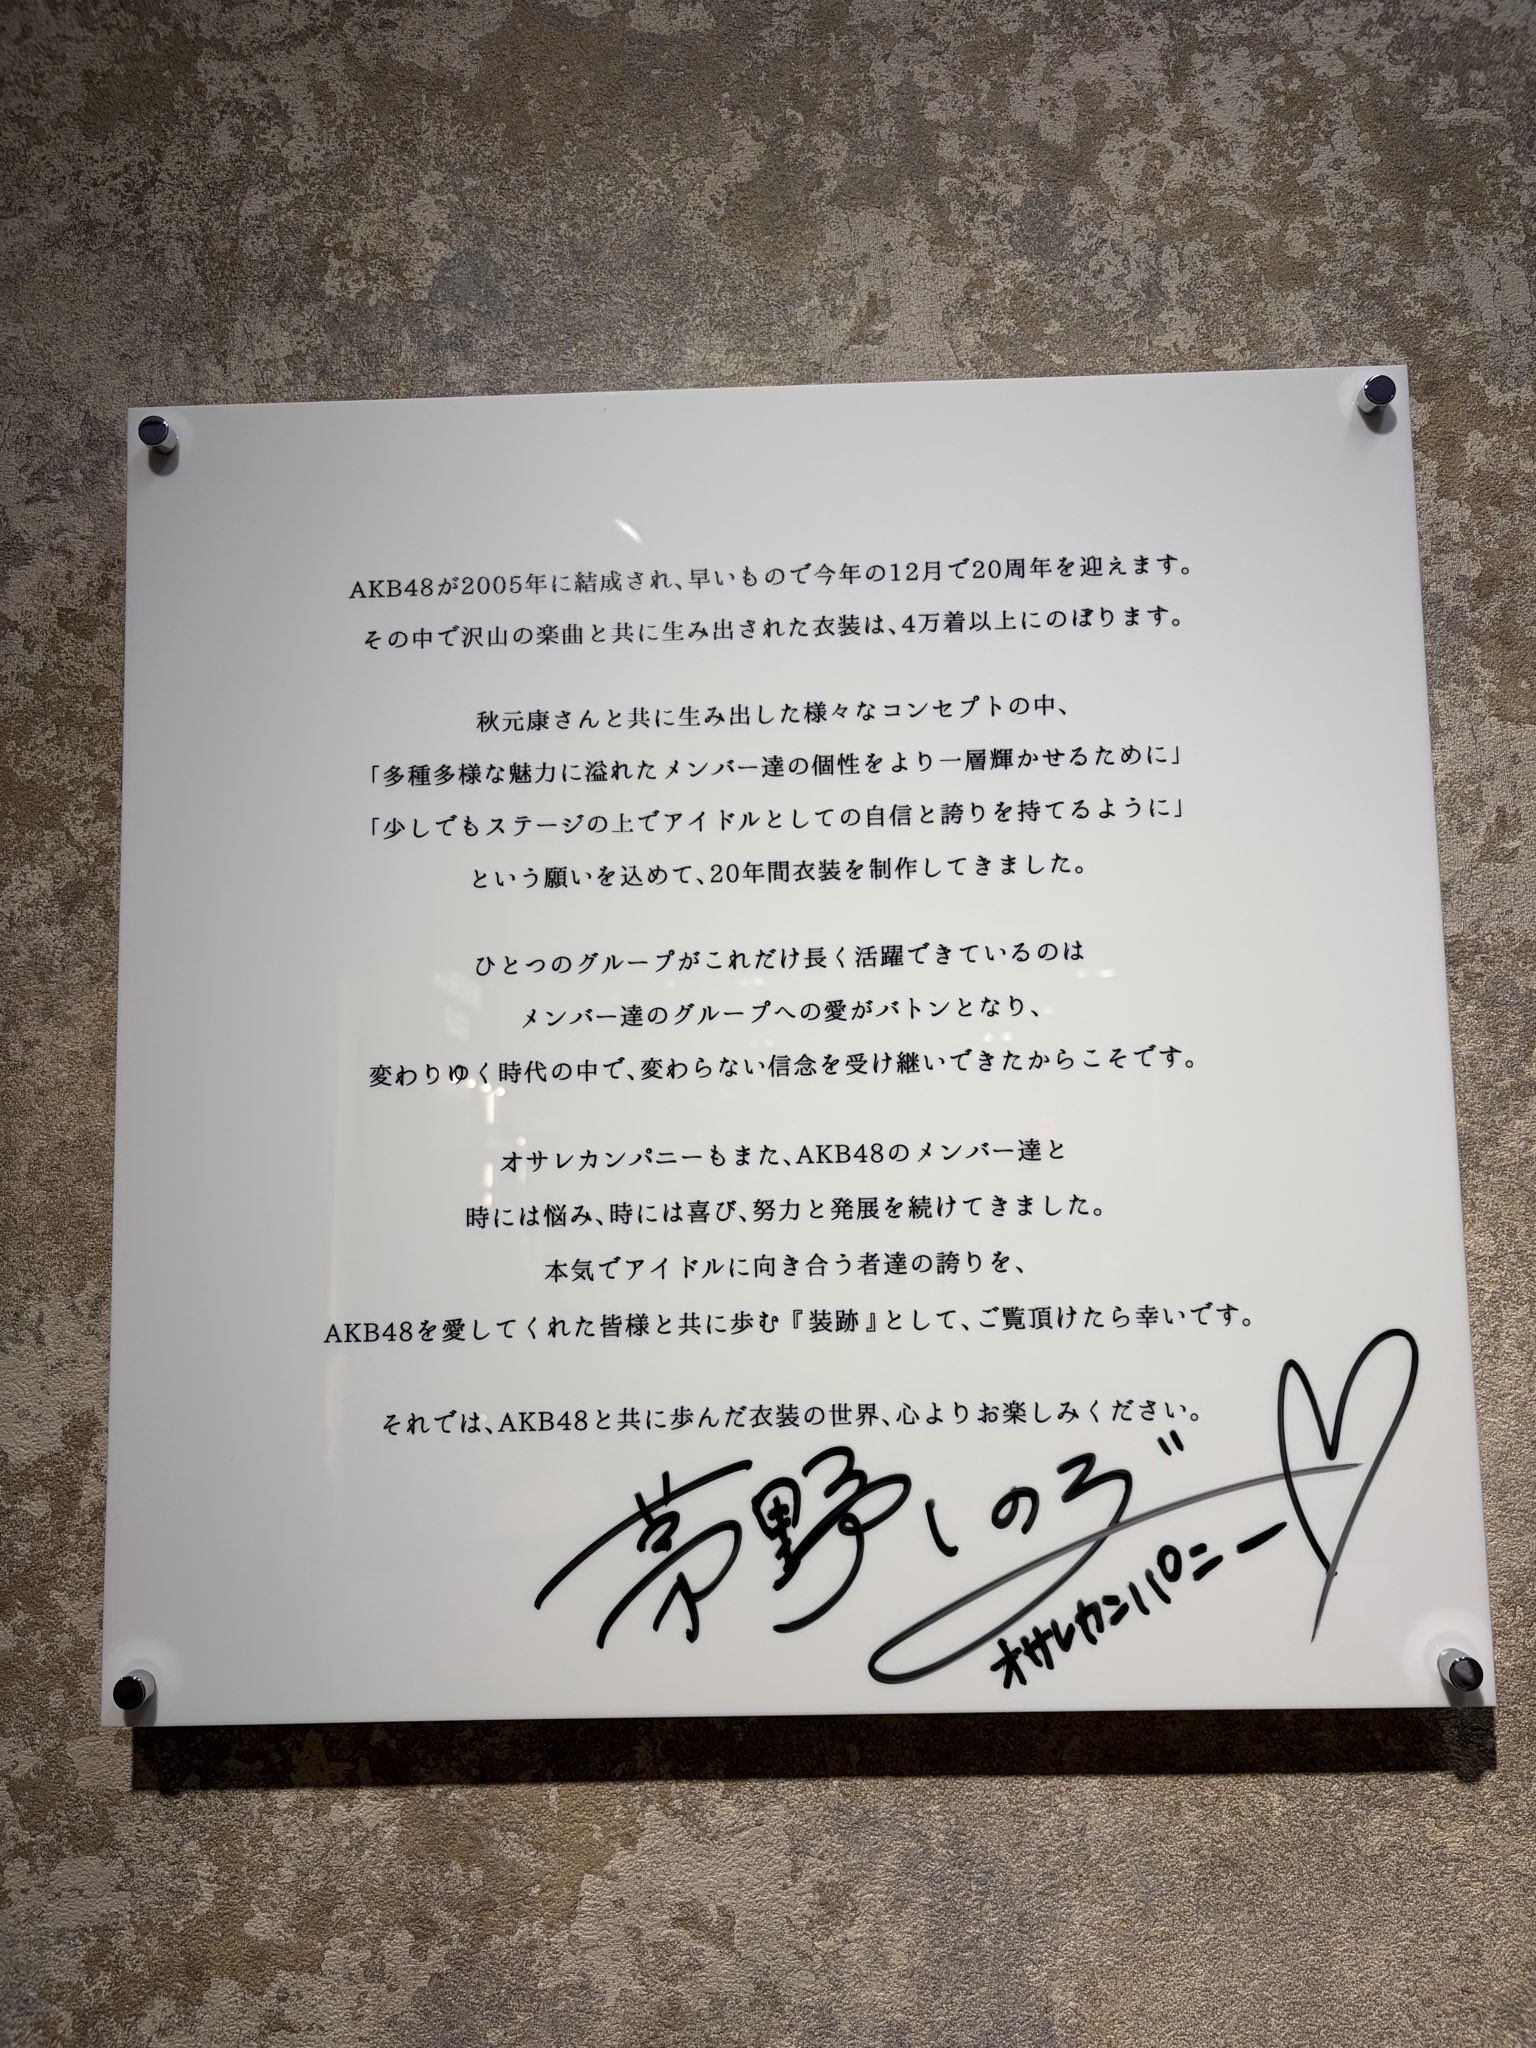 AKB48が2005年に結成され、早いもので今年の12月で20周年を迎えます。
その中で沢山の楽曲と共に生み出された衣装は、4万着以上にのぼります。
秋元康さんと共に生み出した様々なコンセプトの中、
「多種多様な魅力に溢れたメンバー達の個性をより一層輝かせるために」
「少しでもステージの上でアイドルとしての自信と誇りを持てるように」
という願いを込めて、20年間衣装を制作してきました。
ひとつのグループがこれだけ長く活躍できているのは
メンバー達のグループへの愛がバトンとなり、
変わりゆく時代の中で、変わらない信念を受け継いできたからこそです。
オサレカンパニーもまた、AKB48のメンバー達と
時には悩み、時には喜び、努力と発展を続けてきました。
本気でアイドルに向き合う者達の誇りを、
AKB48を愛してくれた皆様と共に歩む『装跡』として、ご覧頂けたら幸いです。
それでは、AKB48と共に歩んだ衣装の世界、心よりお楽しみください。
茅野しのぶ
オサレカンパニー